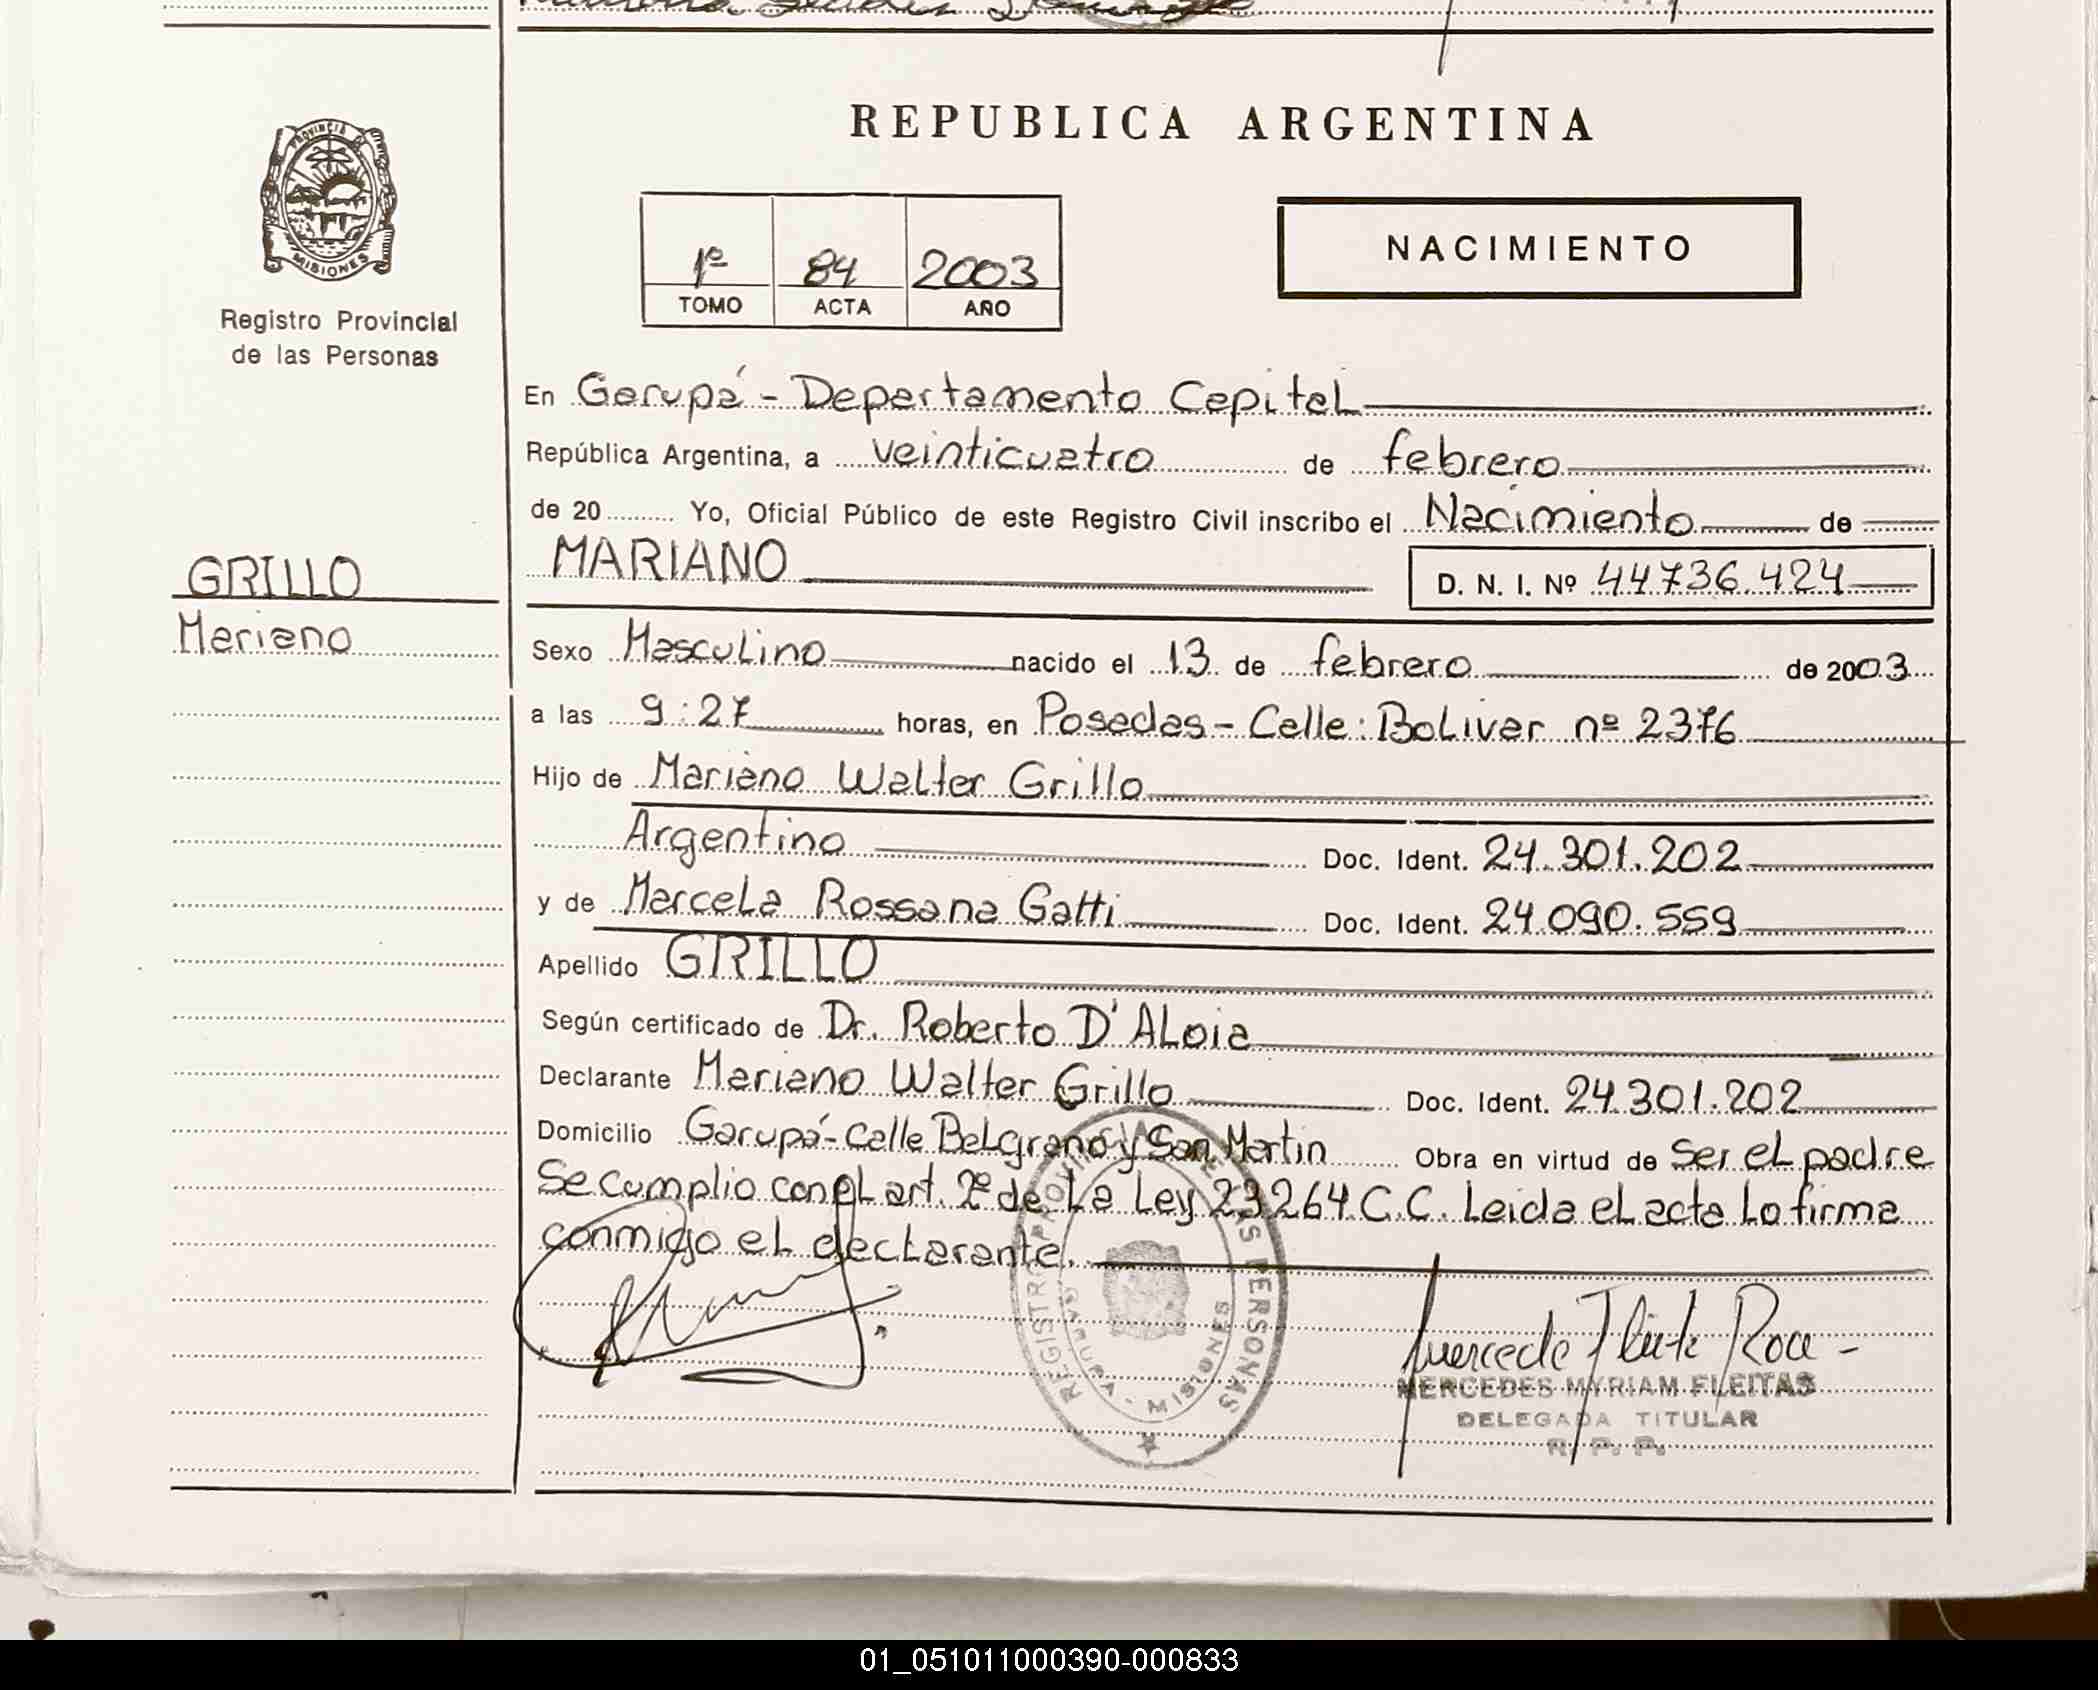 REPUBLICA ARGENTINA
PROVINCIA DE
MISIONES
Registro Provincial
de las Personas
1º 84 2003
TOMO ACTA AÑO
NACIMIENTO
En Garupá - Departamento Capital
República Argentina, a veinticuatro de febrero
de 20 Yo, Oficial Público de este Registro Civil inscribo el Nacimiento de
GRILLO
Mariano
MARIANO D. N. I. Nº 44736.424
Sexo Masculino nacido el 13 de febrero de 2003
a las 9:27 horas, en Posadas - Calle: Bolivar nº 2376
Hijo de Mariano Walter Grillo
Argentino Doc. Ident. 24.301.202
y de Marcela Rossana Gatti Doc. Ident. 24.090.559
Apellido GRILLO
Según certificado de Dr. Roberto D'Aloia
Declarante Mariano Walter Grillo Doc. Ident. 24.301.202
Domicilio Garupá - calle Belgrano y San Martin Obra en virtud de ser el padre
Se cumplio con el art. 2º de La Ley 23264 C.C. Leida el acta lo firma
conmigo el declarante.
REGISTRO PROVINCIAL DE LAS PERSONAS
MISIONES
MERCEDES MYRIAM FLEITAS
DELEGADA TITULAR
R. P. P.
01_051011000390-000833